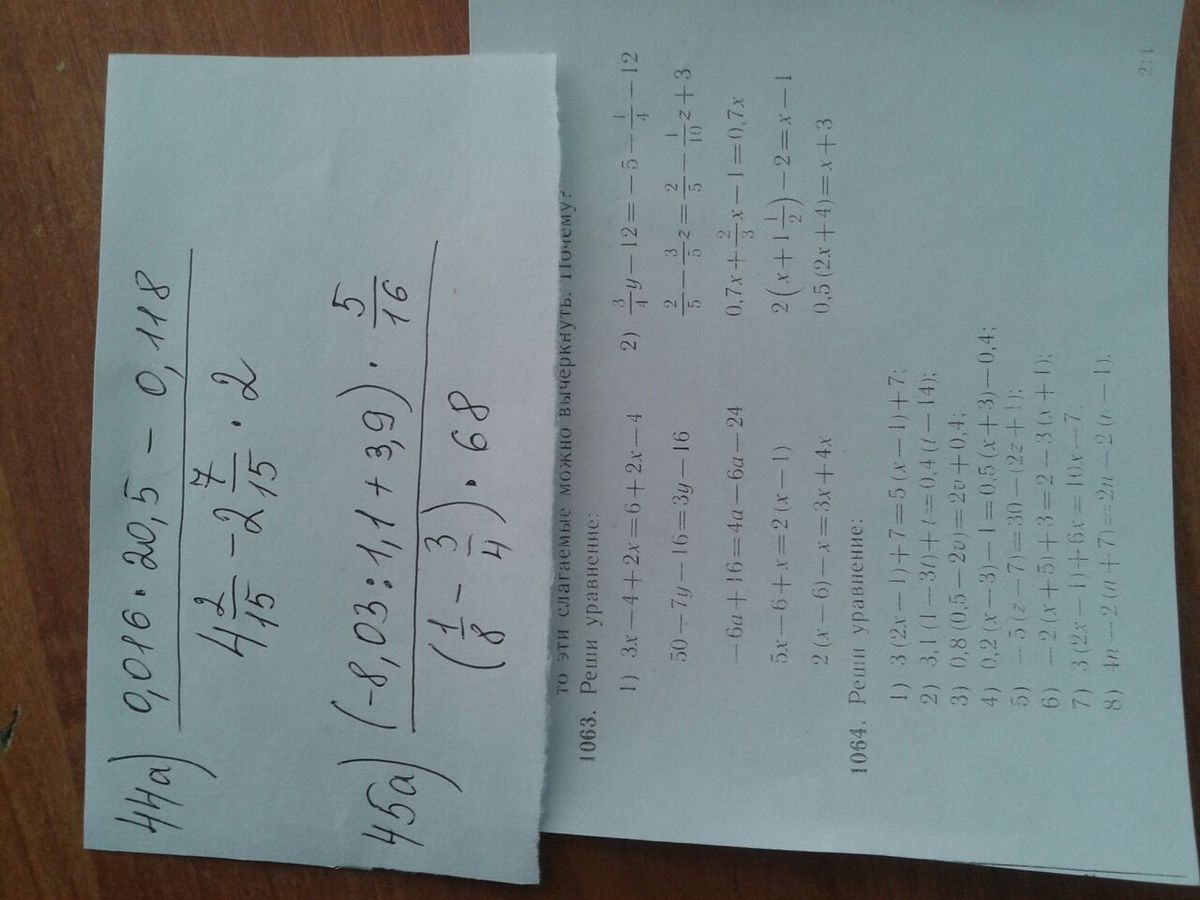 44а) 0,016 · 20,5 − 0,118
4 2/15 − 2 7/15 · 2
45а) (−8,03 : 1,1 + 3,9) · 5/16
(1/8 − 3/4) · 68
то эти слагаемые можно вычеркнуть. Почему?
1063. Реши уравнение:
1) 3x−4+2x=6+2x−4
50−7y−16=3y−16
−6a+16=4a−6a−24
5x−6+x=2(x−1)
2(x−6)−x=3x+4x
2) 3/4 y−12=−5−1/4−12
2/5−3/5 z=2/5−1/10 z+3
0,7x+2/3 x−1=0,7x
2(x+1 1/2)−2=x−1
0,5(2x+4)=x+3
1064. Реши уравнение:
1) 3(2x−1)+7=5(x−1)+7;
2) 3,1(1−3t)+t=0,4(t−14);
3) 0,8(0,5−2v)=2v+0,4;
4) 0,2(x−3)−1=0,5(x+3)−0,4;
5) −5(z−7)=30−(2z+1);
6) −2(x+5)+3=2−3(x+1);
7) 3(2x−1)+6x=10x−7.
8) 4n−2(n+7)=2n−2(n−1).